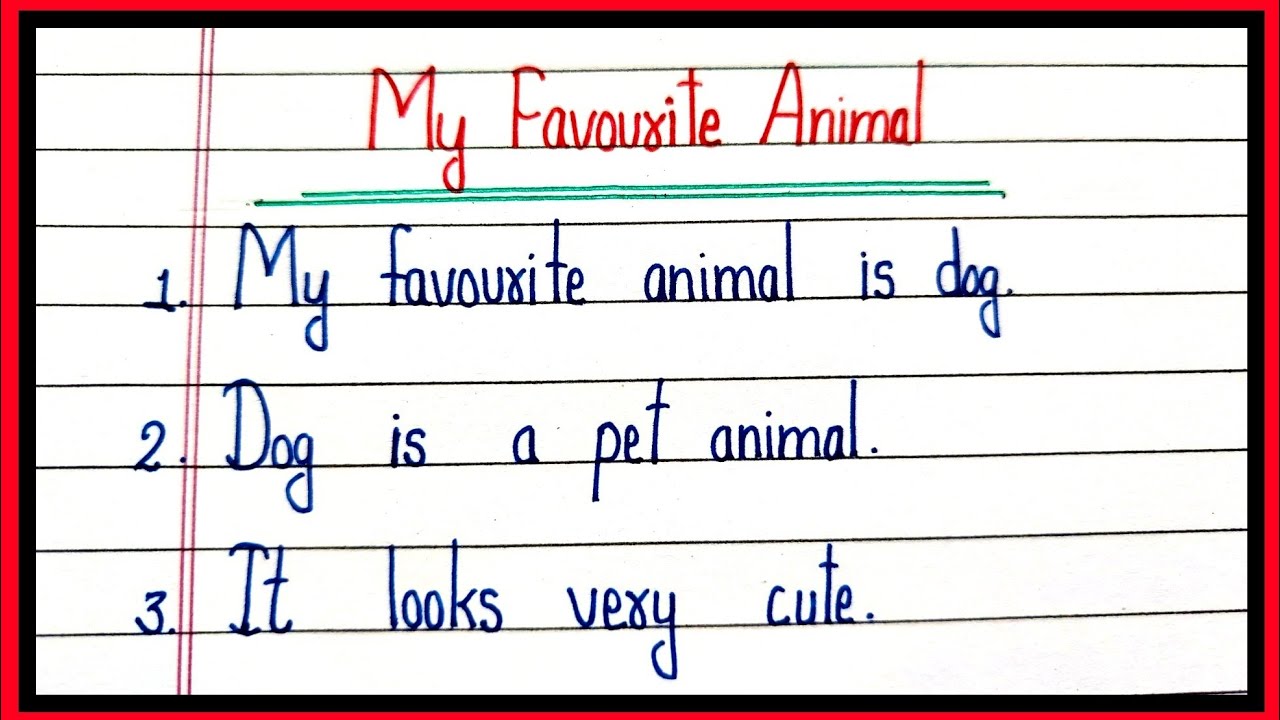 My Favourite Animal
1. My favourite animal is dog.
2. Dog is a pet animal.
3. It looks very cute.